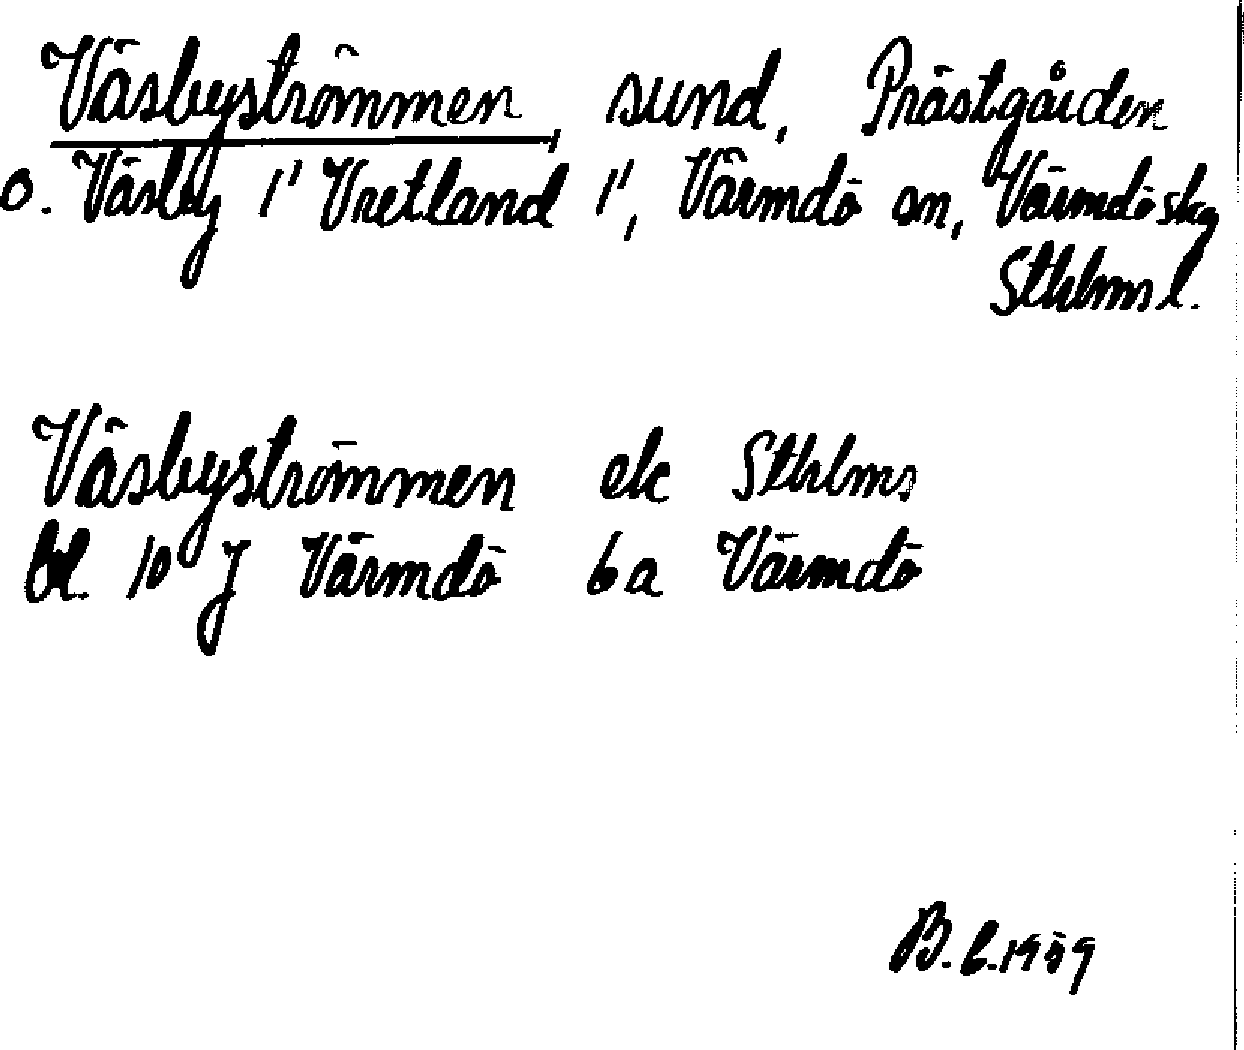 Väsbyströmmen, sund, Prästgården
o. Väsby 1' Vretland 1', Värmdö sn, Värmdö skg
Sthlms l.
Väsbyströmmen ek Sthlms
bl. 10 J Värmdö 6a Värmdö
B.L.1959